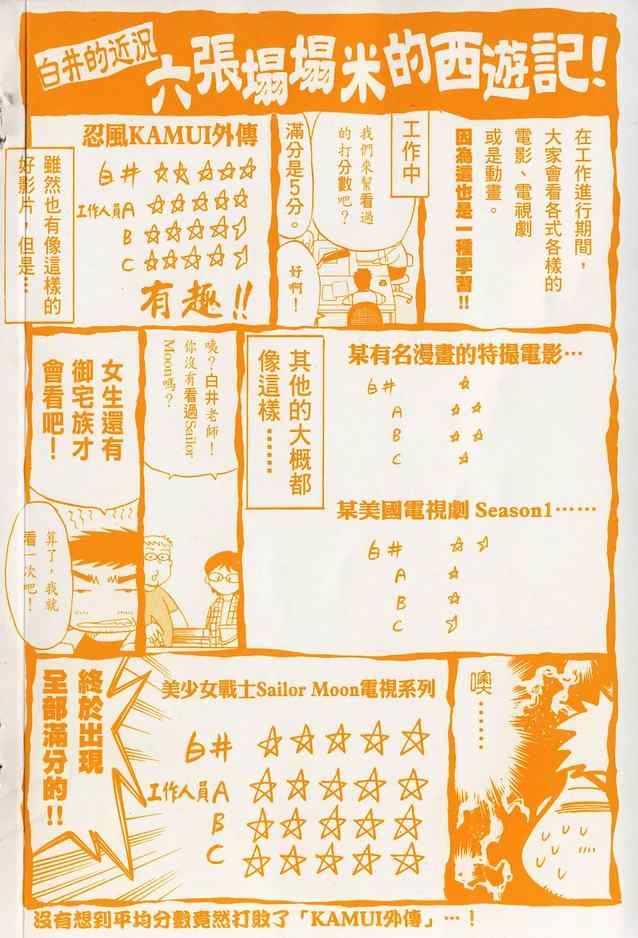 白井的近況
六張塌塌米的西遊記！
在工作進行期間，
大家會看各式各樣的
電影、電視劇
或是動畫。
因為這也是一種學習!!
工作中
我們來幫看過
的打分數吧？
滿分是5分。
好啊！
忍風KAMUI外傳
白井 ☆☆☆☆☆
工作人員A ☆☆☆☆☆
B
C
有趣!!
雖然也有像這樣的
好影片，但是…
某有名漫畫的特撮電影…
白井 ☆
A ☆☆
B ☆☆
C ☆
某美國電視劇 Season1……
白井
A ☆
B ☆
C
其他的大概都
像這樣……
咦？白井老師！
你沒有看過Sailor
Moon嗎？
女生還有
御宅族才
會看吧！
算了，我就
看一次吧！
噢……
美少女戰士Sailor Moon電視系列
白井 ☆☆☆☆☆
工作人員A ☆☆☆☆☆
B ☆☆☆☆☆
C ☆☆☆☆☆
終於出現
全部滿分的!!
沒有想到平均分數竟然打敗了「KAMUI外傳」…！